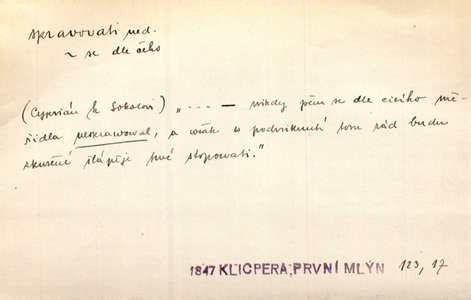 spravovati ned.
~ se dle čeho
(Cyprián k Sokolovi) „--- — nikdy sem se dle cizího mě-
řidla nespravowal, a wšak w podniknutí tom rád budu
skušené šlápěje twé stopowati."
1847 KLICPERA, PRVNÍ MLÝN 123, 17